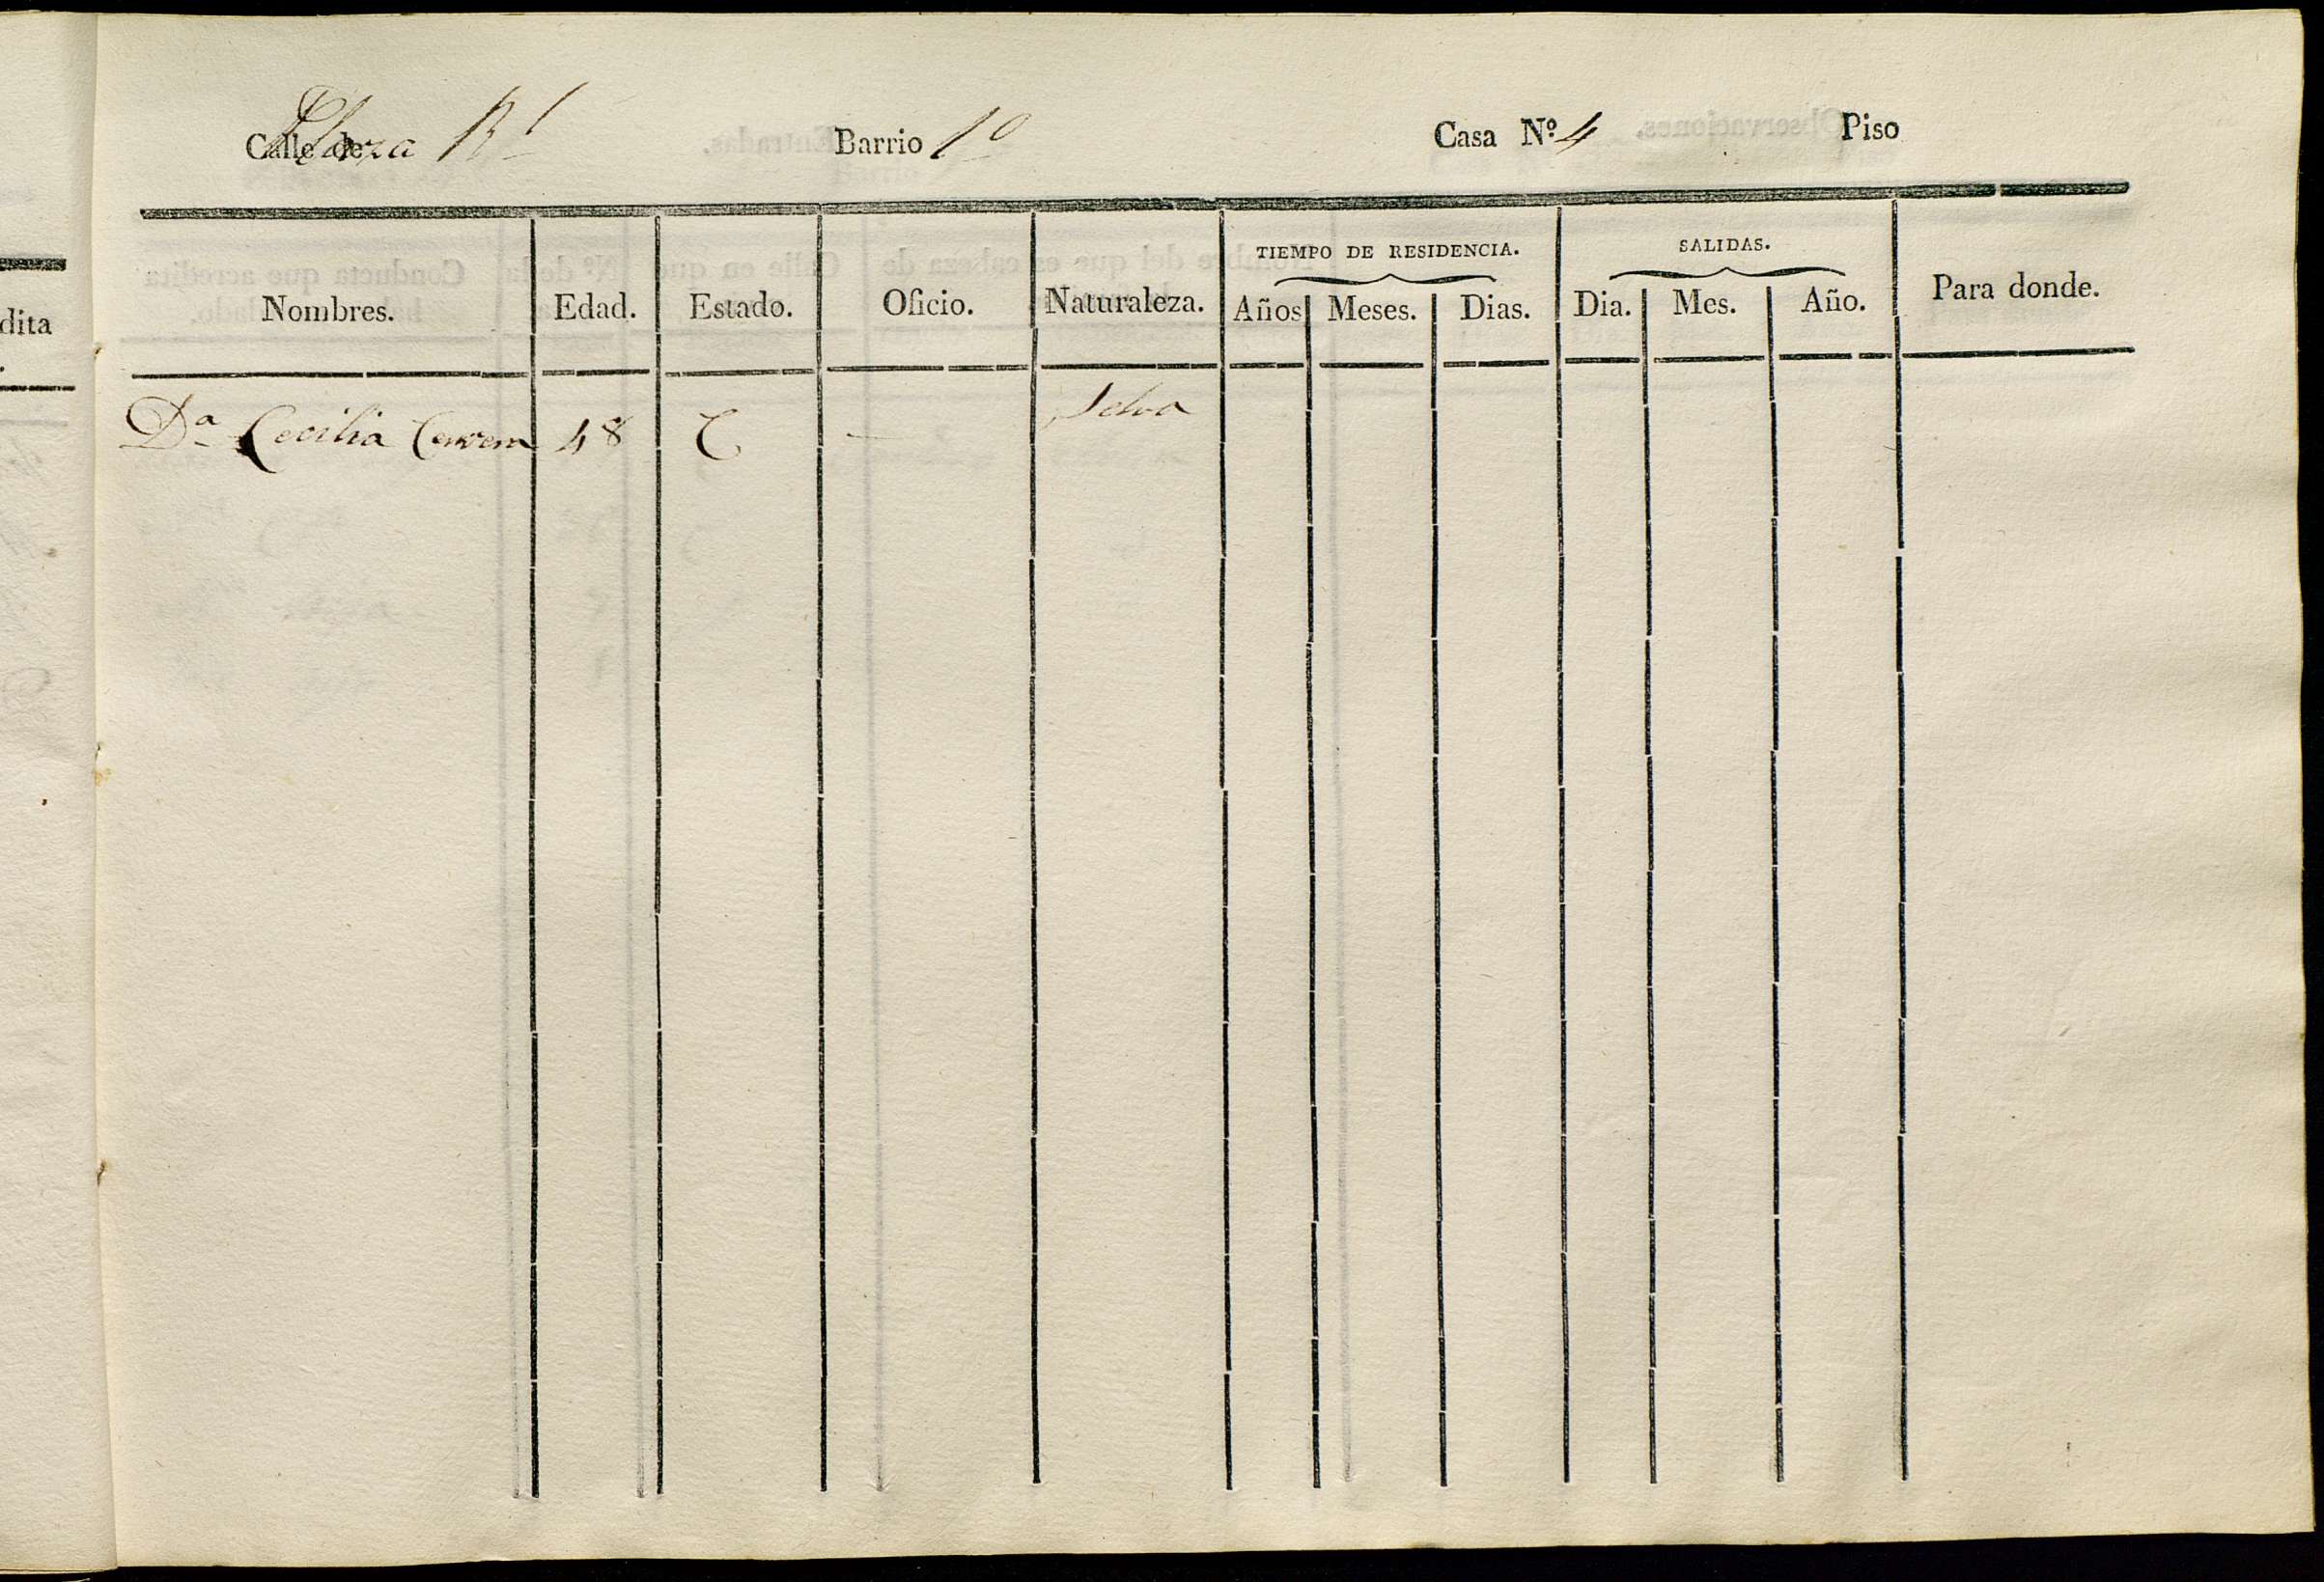 Calle de Plaza Rl Barrio 1º Casa Nº 4 Piso
TIEMPO DE RESIDENCIA. SALIDAS.
Nombres. Edad. Estado. Oficio. Naturaleza. Años Meses. Dias. Dia. Mes. Año. Para donde.
Da Cecilia Cervera 48 C — Selva
dita